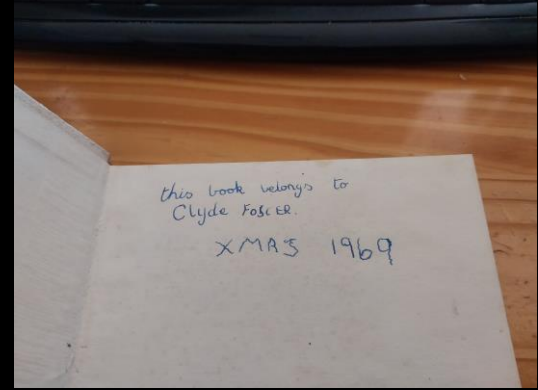 this book velongs to
Clyde FOSTER.
XMAS 1969